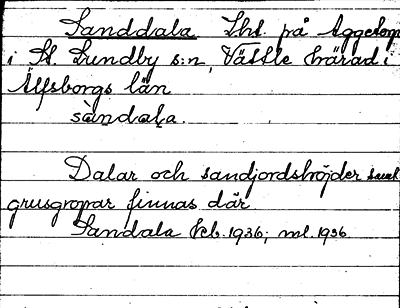 Sanddala Lht. på Aggetorp
i St. Lundby s:n, Vättle härad i
Älfsborgs län
sàndala.
Dalar och sandjordshöjder samt
grusgropar finnas där
Sandala Kcb. 1936; ml. 1936